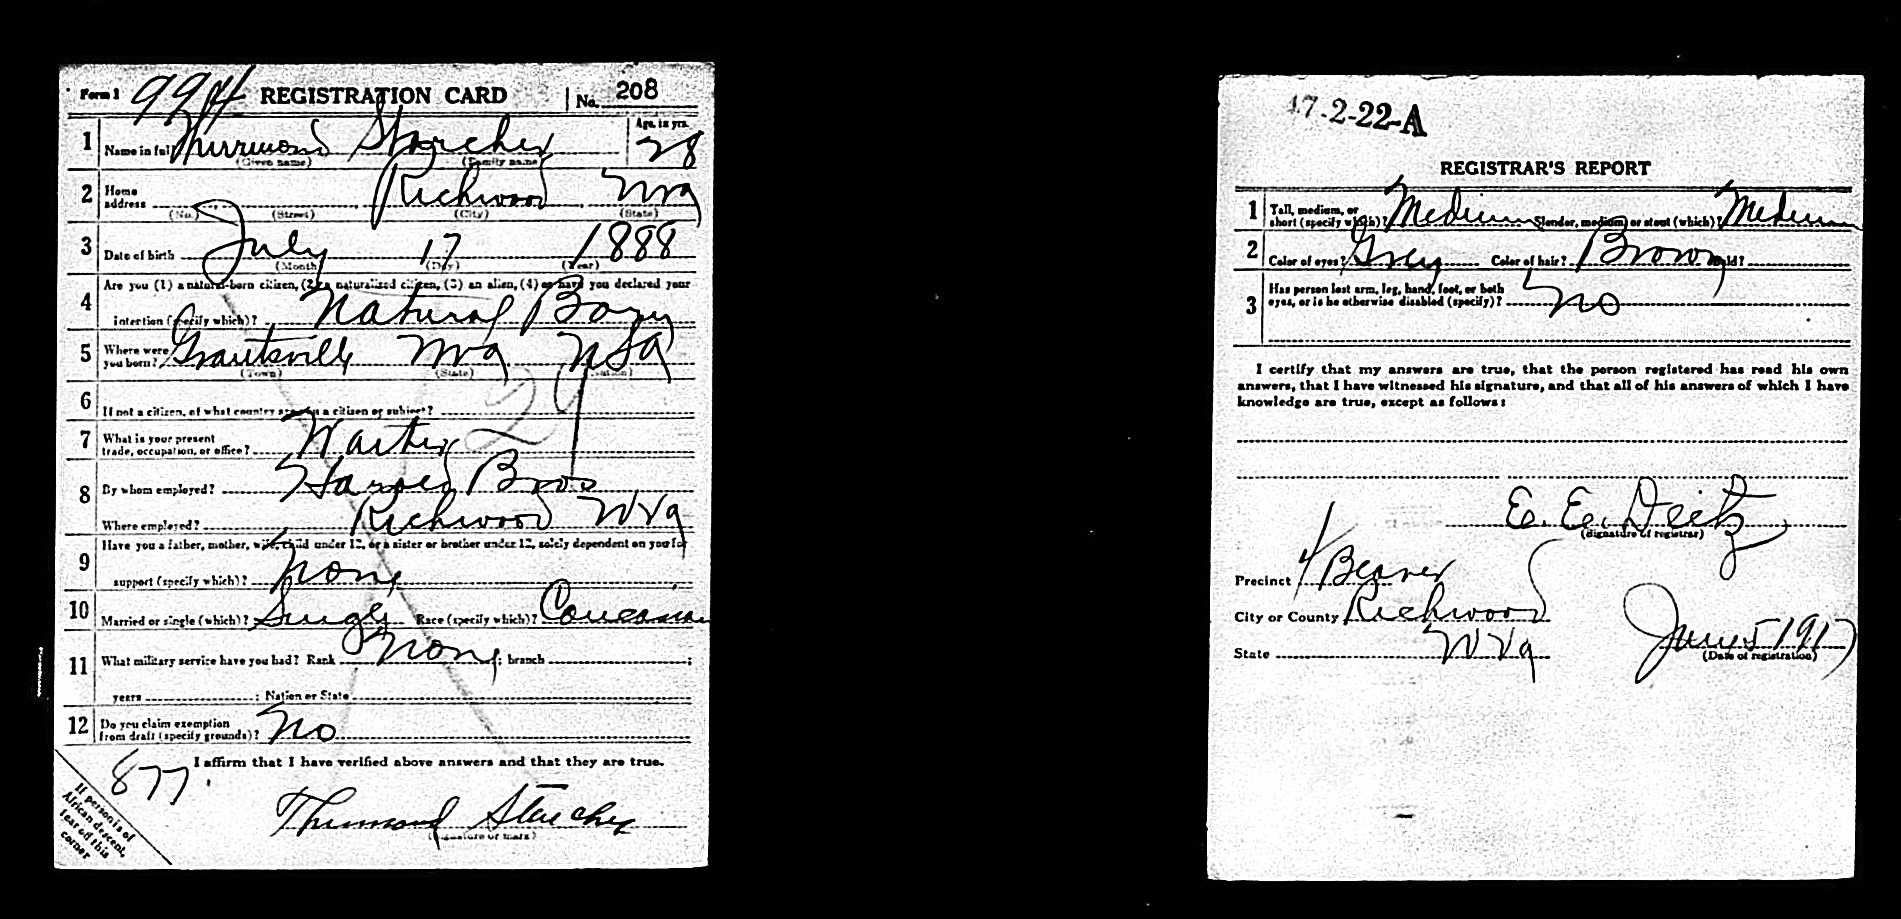 Form 1 994 REGISTRATION CARD No. 208
1 Name in full Thurmond Starcher Age, in yrs. 28
(Given name) (Family name)
2 Home address Richwood W Va
(No.) (Street) (City) (State)
3 Date of birth July 17 1888
(Month) (Day) (Year)
4 Are you (1) a natural-born citizen, (2) a naturalized citizen, (3) an alien, (4) or have you declared your
intention (specify which)? Natural Born
5 Where were you born? Grantsville W Va USA
(Town) (State) (Nation)
6 If not a citizen, of what country are you a citizen or subject?
7 What is your present
trade, occupation, or office? Waiter
8 By whom employed? Bros
Where employed? Richwood W Va
9 Have you a father, mother, wife, child under 12, or a sister or brother under 12, solely dependent on you for
support (specify which)? None
10 Married or single (which)? Single Race (specify which)? Caucasian
11 What military service have you had? Rank None ; branch ;
years ; Nation or State
12 Do you claim exemption
from draft (specify grounds)? No
I affirm that I have verified above answers and that they are true.
877
Thurmond Starcher
(Signature or mark)
If person is of
African descent,
tear off this
corner
47-2-22-A
REGISTRAR'S REPORT
1 Tall, medium, or
short (specify which)? Medium Slender, medium, or stout (which)? Medium
2 Color of eyes? Grey Color of hair? Brown Bald?
3 Has person lost arm, leg, hand, foot, or both
eyes, or is he otherwise disabled (specify)? No
I certify that my answers are true, that the person registered has read his own
answers, that I have witnessed his signature, and that all of his answers of which I have
knowledge are true, except as follows:
E. E. Deitz
(Signature of registrar)
Precinct 4 Beaver
City or County Richwood
State W Va
June 5 1917
(Date of registration)